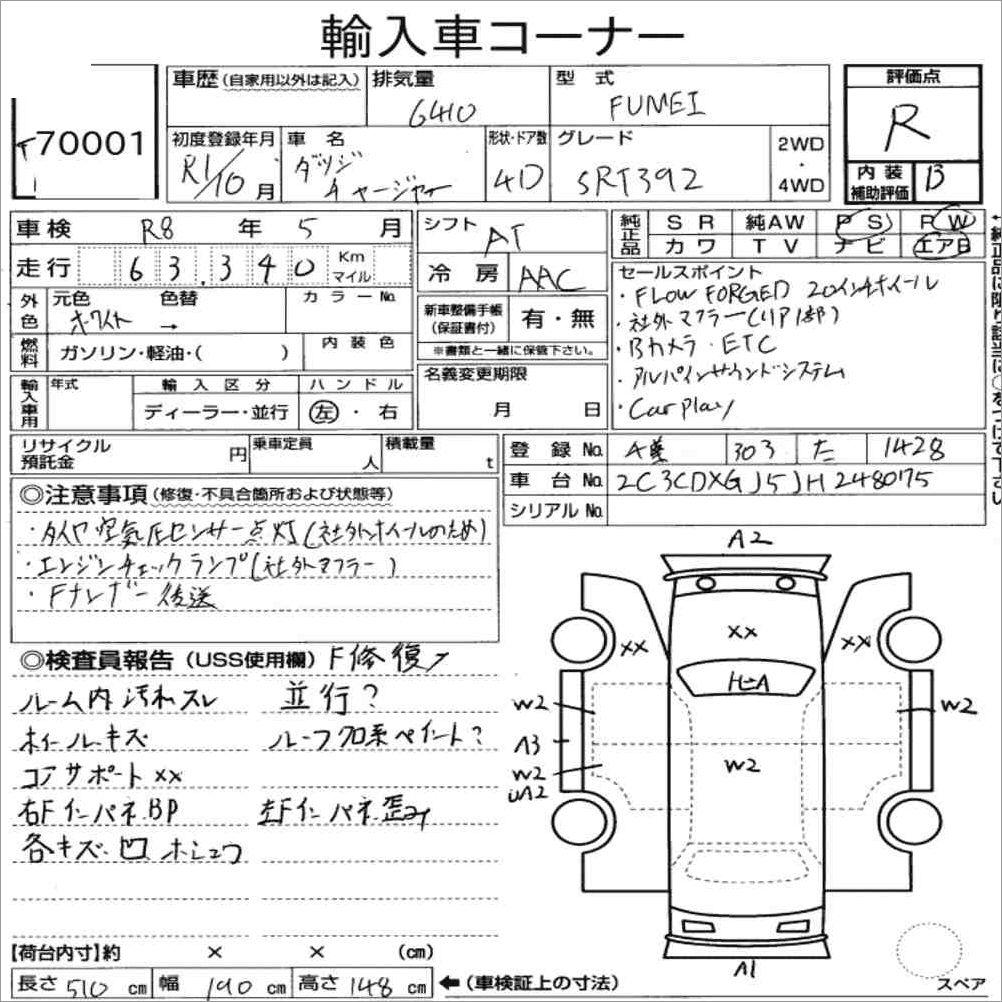 輸入車コーナー
70001
車歴(自家用以外は記入)
排気量 6410
型式 FUMEI
評価点 R
初度登録年月 R1/10月
車名 ダッジ チャージャー
形状・ドア数 4D
グレード SRT392
2WD・4WD
内装補助評価 B
車検 R8年 5月
シフト AT
純正品 SR 純AW PS PW
カワ TV ナビ エアB
走行 63,340 Km マイル
冷房 AAC
外色 元色 ホワイト 色替 → カラーNo.
燃料 ガソリン・軽油・( ) 内装色
新車整備手帳(保証書付) 有・無
※書類と一緒に保管下さい。
セールスポイント
・FLOW FORGED 20インチホイール
・社外マフラー(リア1部)
・Bカメラ・ETC
・アルパインサウンドシステム
・Carplay
輸入車用 年式 輸入区分 ディーラー・並行 ハンドル 左・右
名義変更期限 月 日
リサイクル預託金 円 乗車定員 人 積載量 t
登録No. 303 た 1428
車台No. 2C3CDXGJ5JH248075
シリアルNo.
◎注意事項(修復・不具合箇所および状態等)
・タイヤ空気圧センサー点灯(社外ホイールのため)
・エンジンチェックランプ(社外マフラー)
・Fナンバー後送
◎検査員報告(USS使用欄) F修復ア
ルーム内汚れスレ 並行?
ホイールキズ ルーフ黒系ペイント?
コアサポートXX
右FインパネBP 左Fインパネ歪み
各キズ.凹 ホシュウ
A2
XX XX XX
W2 W2
A3
W2 W2
A1
【荷台内寸】約 × × (cm)
長さ 510 cm 幅 190 cm 高さ 148 cm ←(車検証上の寸法)
スペア